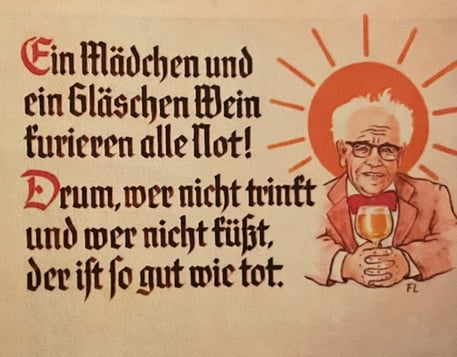 Ein Mädchen und
ein Gläschen Wein
kurieren alle Not!
Drum, wer nicht trinkt
und wer nicht küßt,
der ist so gut wie tot.
FL